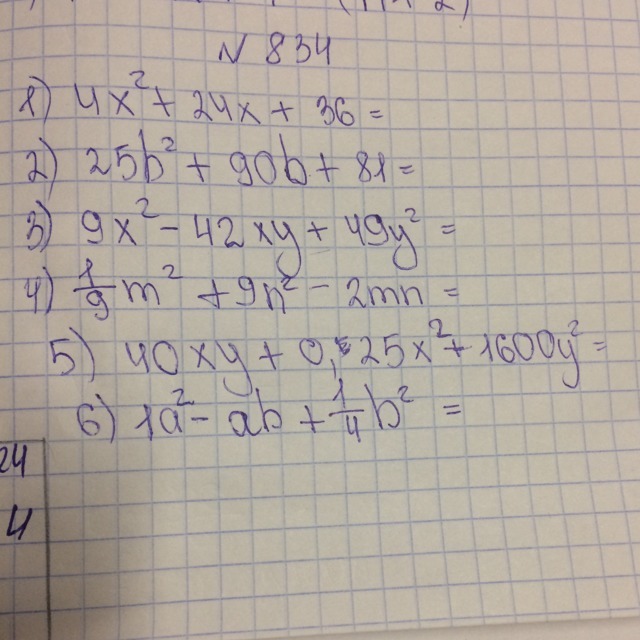 N 834
1) 4x² + 24x + 36 =
2) 25b² + 90b + 81 =
3) 9x² - 42xy + 49y² =
4) 1/9 m² + 9n² - 2mn =
5) 40xy + 0,25x² + 1600y² =
6) 1a² - ab + 1/4 b² =
24
4